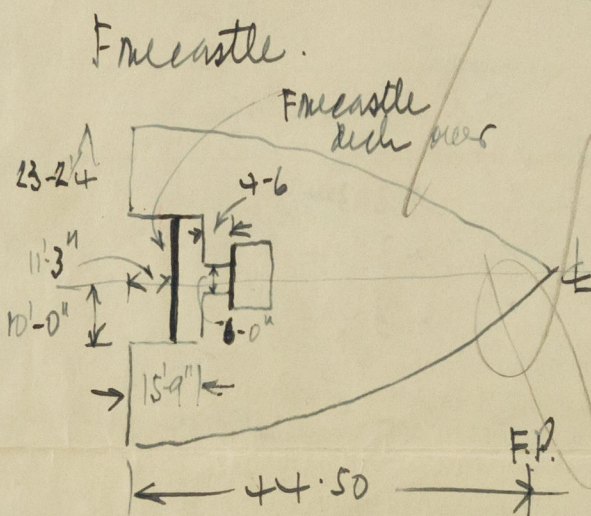 Forecastle.
Forecastle
deck over
23-2¼
4-6
11'-3"
10'-0"
6-0"
15'-9"
44.50
F.P.